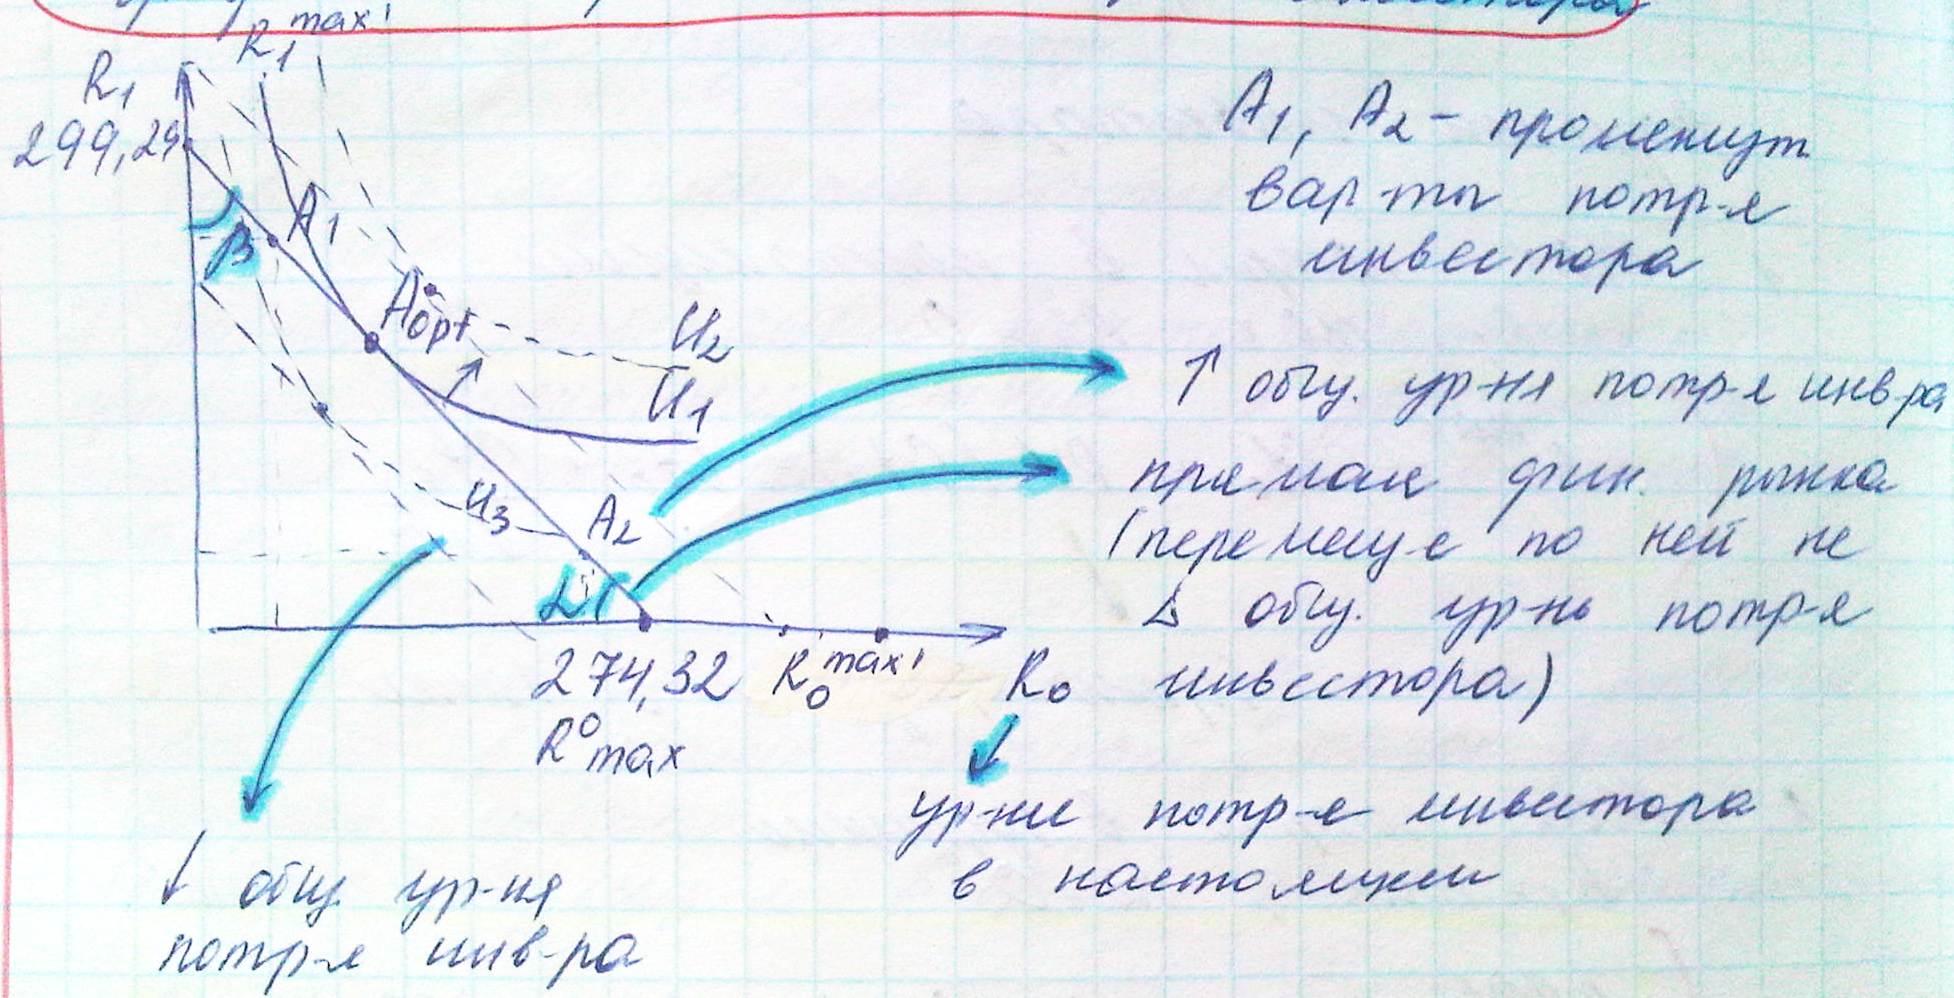 R₁ max'
R₁
299,29
A₁
β
Aopt
U₂
U₁
U₃
A₂
α
274,32 R₀ max'
R⁰max
R₀
A₁, A₂ - промежут
вар-ты потр-я
инвестора
↑ общ. ур-ня потр-я инв-ра
прямая фин. рынка
(перемещ-е по ней не
Δ общ. ур-нь потр-я
инвестора)
ур-нь потр-я инвестора
в настоящем
↓ общ ур-ня
потр-я инв-ра